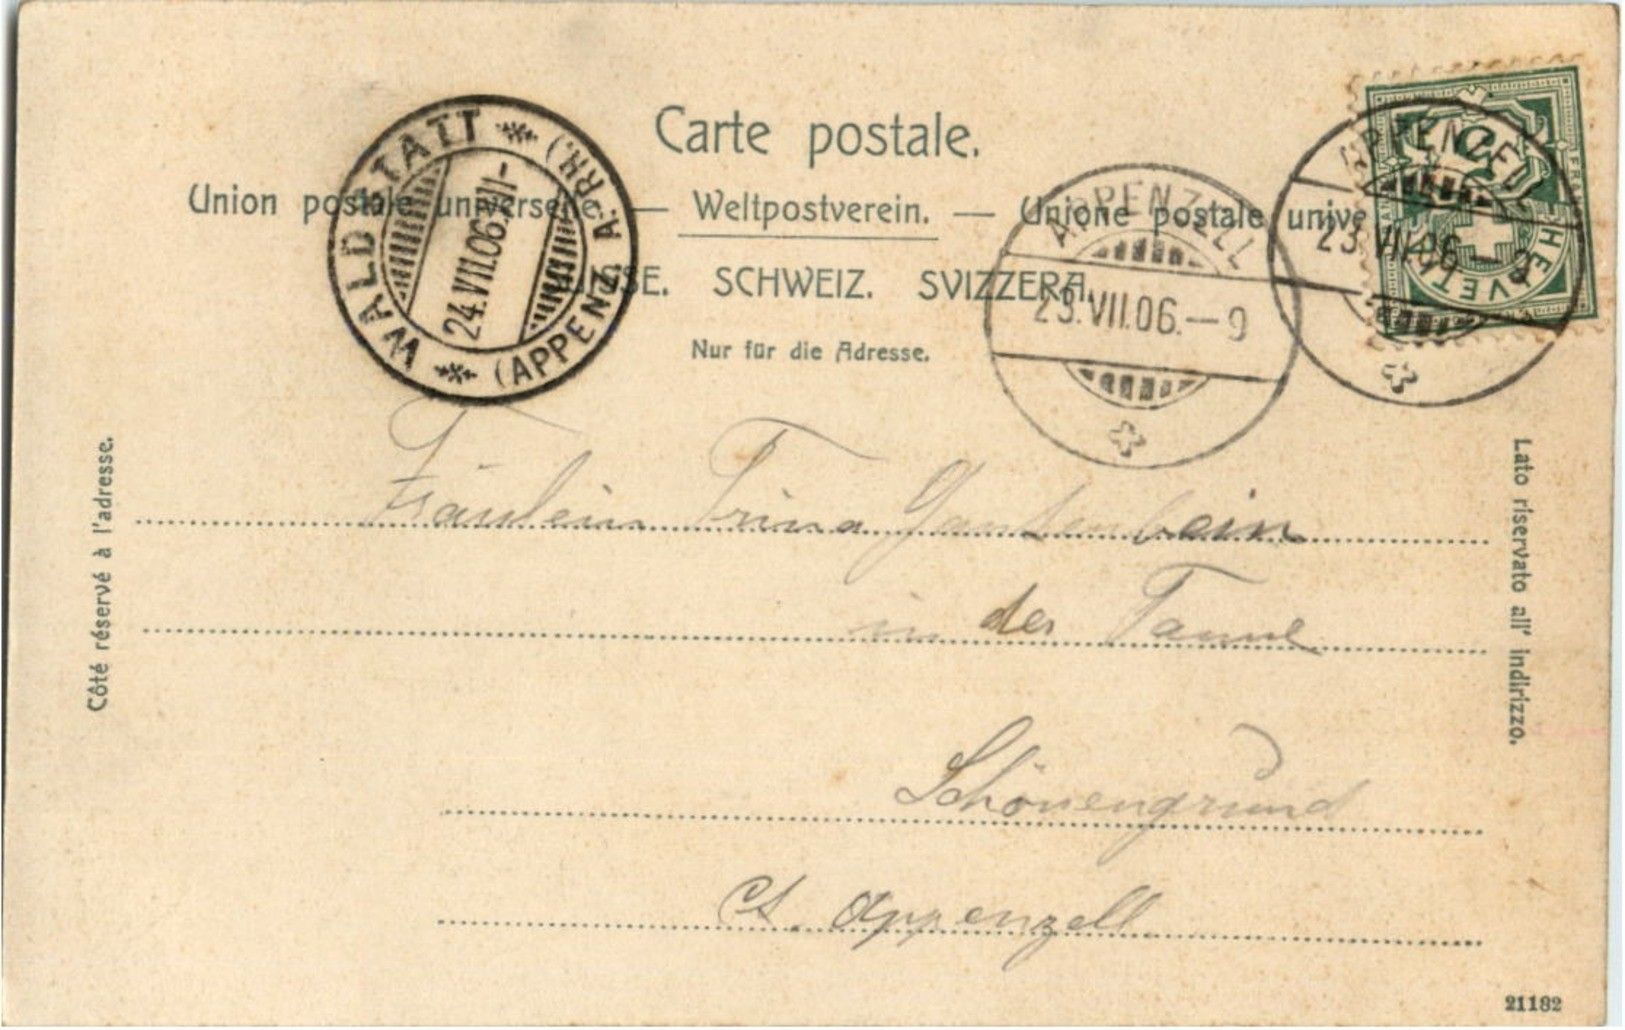 Carte postale.
Union postale universelle. — Weltpostverein. — Unione postale unive
SUISSE. SCHWEIZ. SVIZZERA.
Nur für die Adresse.
WALDSTATT (APPENZ. A. RH.)
24.VII.06.XI-
APPENZELL
23.VII.06.—9
APPENZELL
23.VII.06.—9
FRANCO
HELVETIA
Côté réservé à l'adresse.
Lato riservato all' indirizzo.
Fräulein Trina Gantenbein
in der Tanne
Schönengrund
Ct. Appenzell.
21182